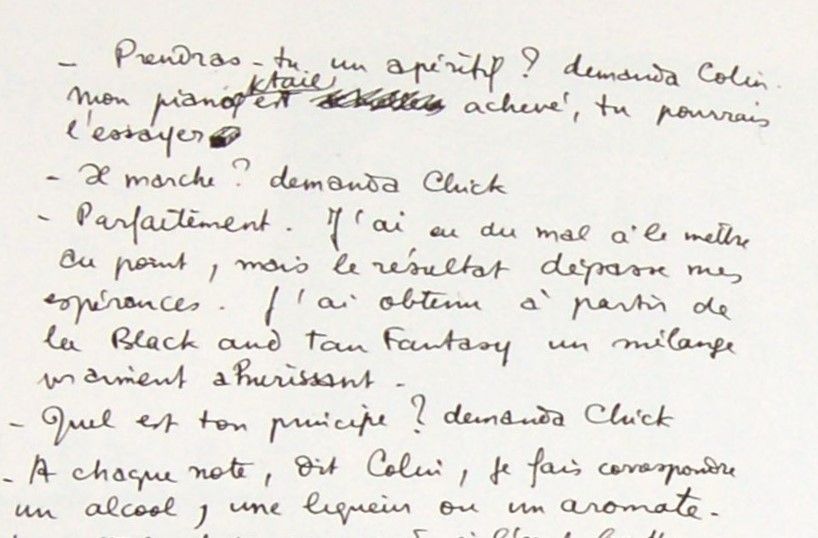 - Prendras-tu un apéritif ? demanda Colin.
mon pianoktail est achevé, tu pourrais
l'essayer
- Il marche ? demanda Chick
- Parfaitement. J'ai eu du mal à le mettre
au point, mais le résultat dépasse mes
espérances. J'ai obtenu à partir de
la Black and tan Fantasy un mélange
vraiment ahurissant.
- Quel est ton principe ? demanda Chick
- A chaque note, dit Colin, je fais correspondre
un alcool, une liqueur ou un aromate.